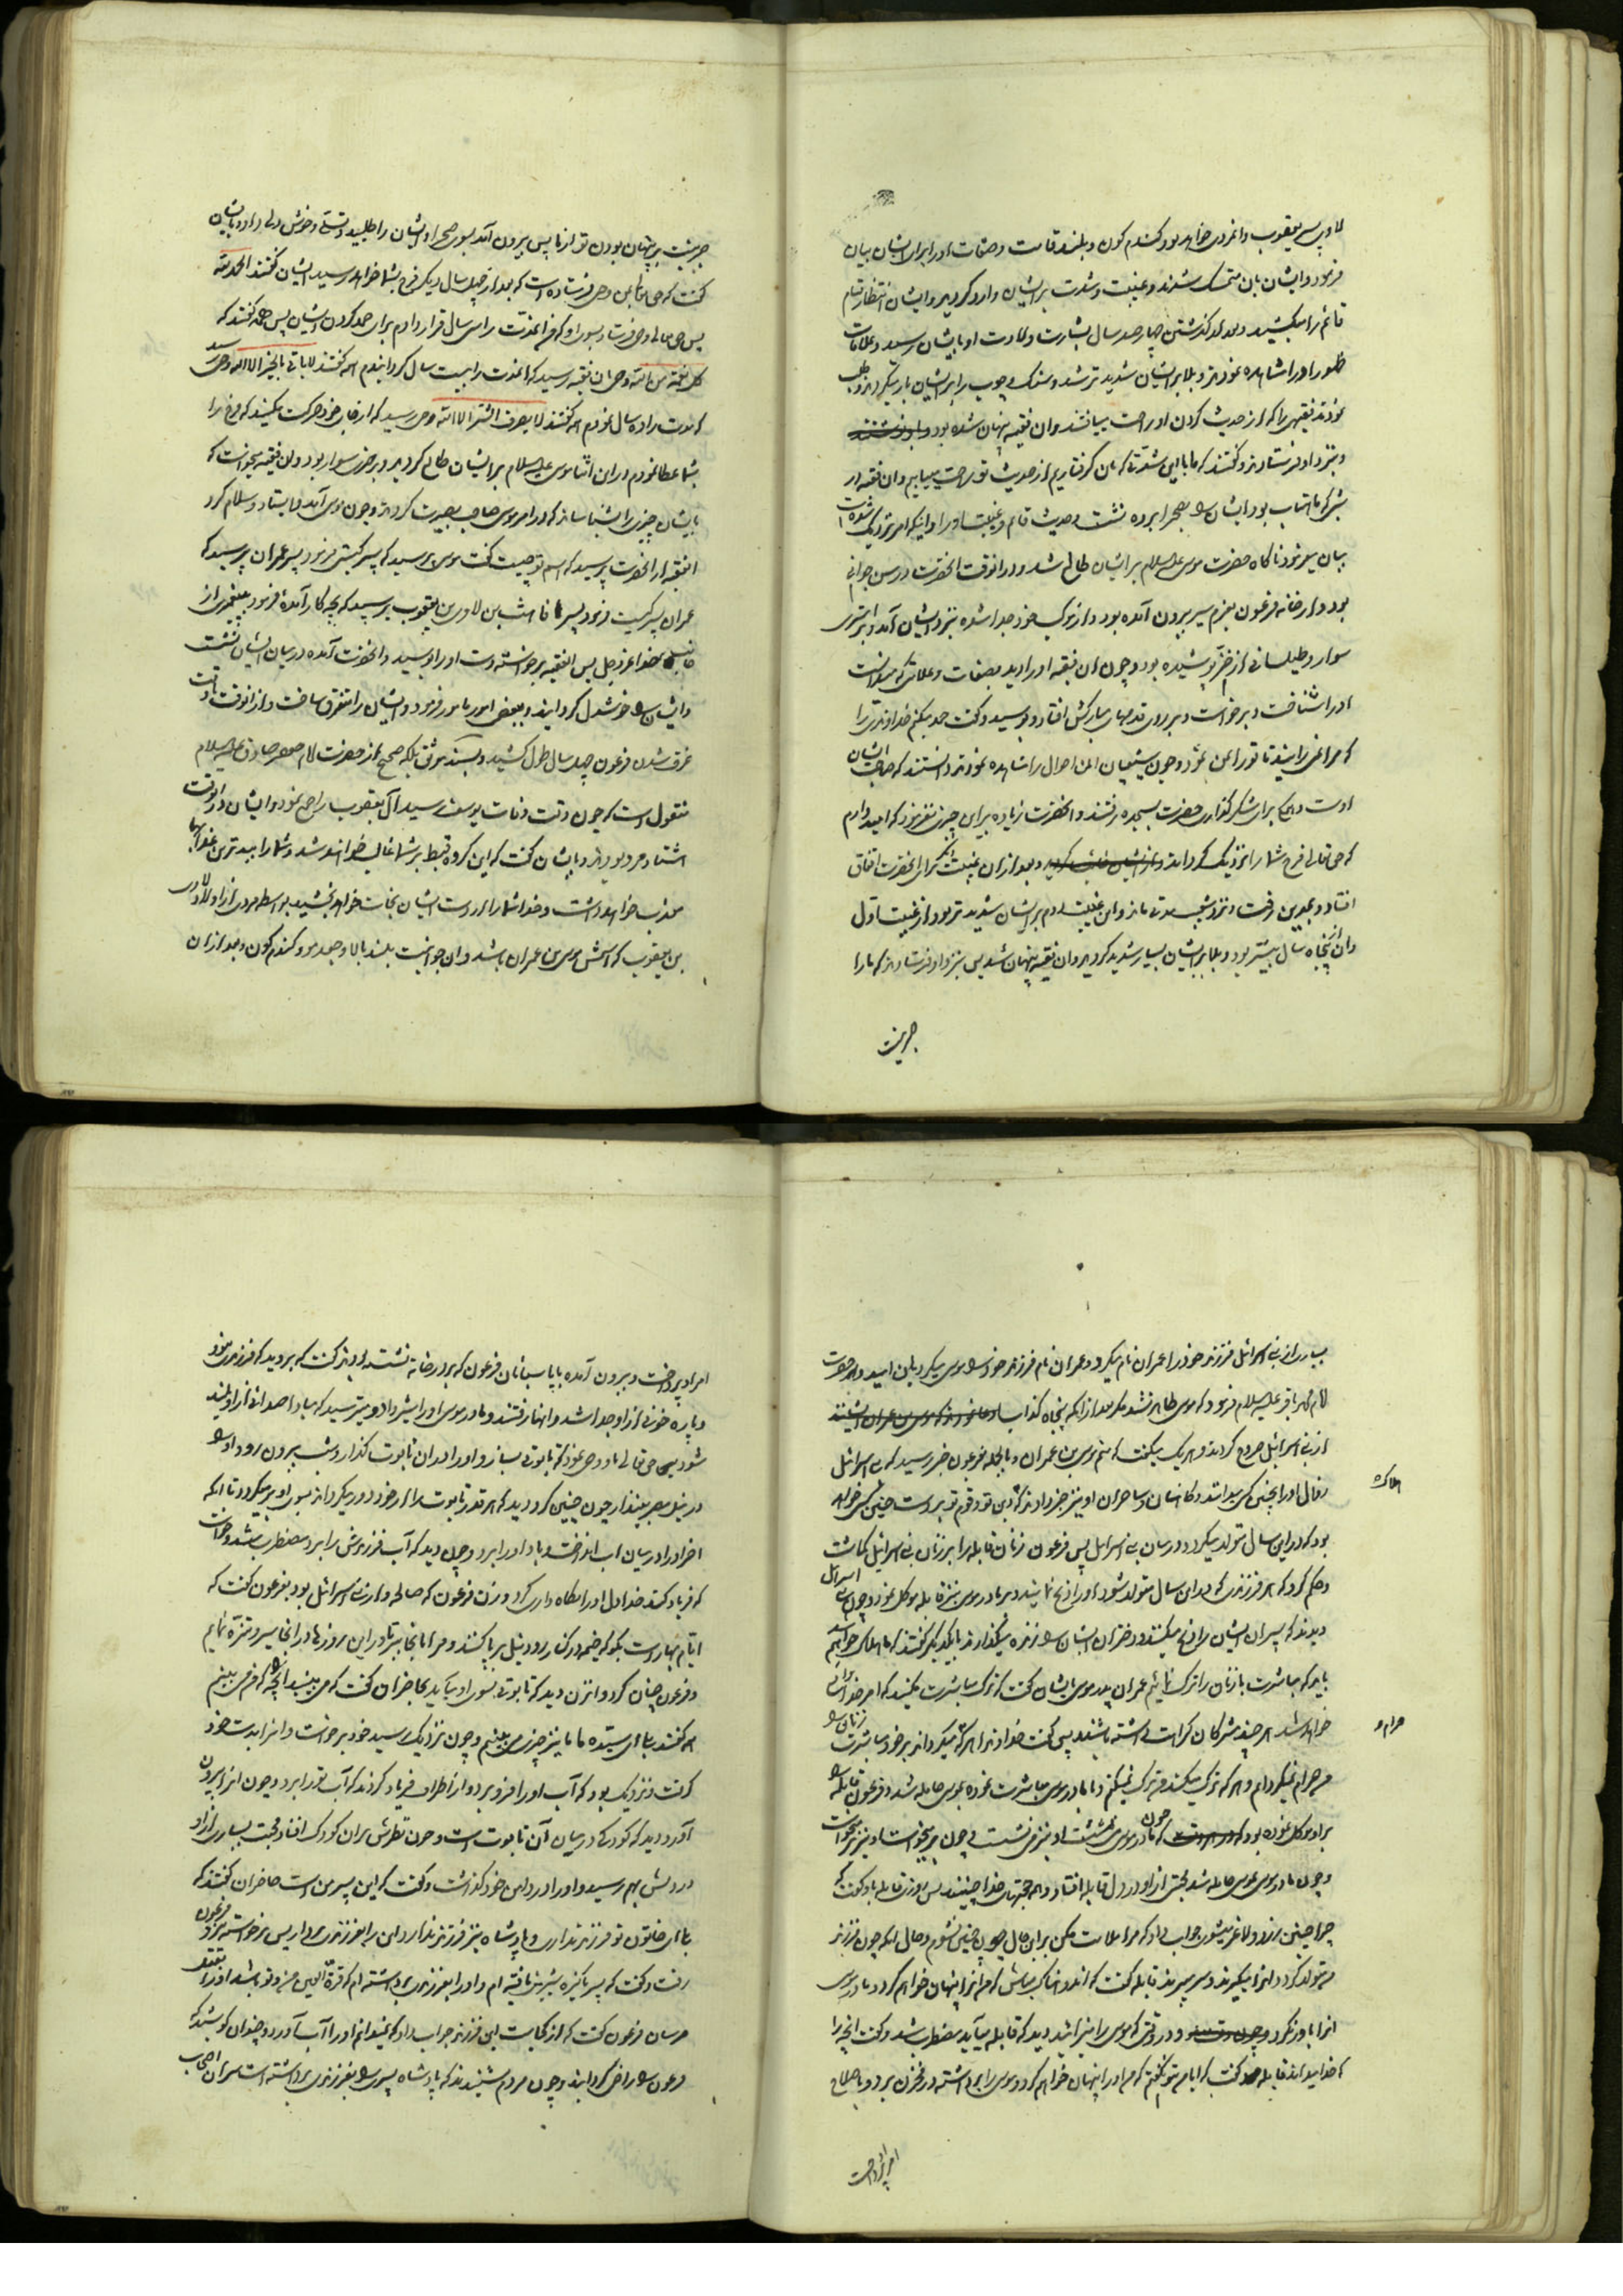 لاوی پسر یعقوب و او مردی خواهد بود گندم گون و بلند قامت و صفات او را برای ایشان بیان
فرمود و ایشان بان متمسک شدند و غیبت و شدت بر ایشان وارد گردید و ایشان انتظار قیام
قائم را میکشیدند و بعد از گذشتن چهار صد سال بشارت ولادت او بایشان رسید و علامات
ظهور او را مشاهده نمودند و بلا بر ایشان شدیدتر شد و سنگ و چوب را بر ایشان بار میکردند و طلب
نمودند فقیهی را که از حدیث کردن او راحت مییافتند و ان فقیه پنهان شده بود
و بنزد او فرستادند و گفتند که ما با این شدتها که بان گرفتاریم از حدیث تو راحت مییابیم و ان فقیه در
شبی که ماهتاب بود ایشان را بصحرا برده نشست و حدیث قائم و غیبت او را و اینکه امر نزدیک شده است
بیان میفرمود ناگاه حضرت موسی علیه السلام بر ایشان طالع شد و در انوقت انحضرت در سن جوانی
بود و از خانه فرعون بعزم سیر بیرون آمده بود و از موکب خود جدا شده بنزد ایشان آمد و بر استری
سوار و طیلسانی از خز پوشیده بود و چون ان فقیه او را دید بصفات و علاماتی که میدانست
او را شناخت و برخواست و بر روی قدمهای مبارکش افتاد و بوسید و گفت حمد میکنم خداوندی را
که مرا نمیرانید تا تو را بمن نمود و چون شیعیان این احوال را مشاهده نمودند دانستند که صاحب ایشان
اوست و همگی برای شکرگذاری حضرت بسجده رفتند و انحضرت زیاده بر این چیزی نفرمود که امید دارم
که حق تعالی فرج شما را نزدیک گرداند و بعد از ان غیبت دیگر از انحضرت اتفاق
افتاد و بمدین رفت و نزد شعیب مدتی ماند و این غیبت دوم بر ایشان شدیدتر بود از غیبت اول
و ان پنجاه سال بیشتر بود و بلا بر ایشان بسیار شدید گردید و ان فقیه پنهان شد پس بنزد او فرستادند که ما را
صبر نیست
صبر نیست بر پنهان بودن تو از ما پس بیرون آمد بسوی صحرا و ایشان را طلبید و تسلی و خوش دلی داد و بایشان
گفت که حق تعالی بمن وحی فرستاده است که بعد از چهل سال دیگر فرج بشما خواهد رسید ایشان گفتند الحمد لله
پس حق تعالی وحی فرستاد بسوی او که من انمدت را سی سال قرار دادم برای حمد کردن ایشان پس همه گفتند که
کل نعمة من الله وحی بان فقیه رسید که انمدت را بیست سال گردانیدم همه گفتند لا یاتی بالخیر الا الله وحی رسید
که مدت را ده سال نمودم همه گفتند لا یصرف الشر الا الله وحی رسید که از جای خود حرکت مکنید که فرج را
بشما عطا نمودم در این اثنا موسی علیه السلام بر ایشان طالع گردید و بر خری سوار بود و ان فقیه میخواست که
بایشان چیزی را بشناساند که در امر موسی صاحب بصیرت گردند و چون موسی آمد و ایستاد و سلام کرد
انفقیه از انحضرت پرسید که اسم تو چیست گفت موسی پرسید که پسر کیستی فرمود پسر عمران پرسید که
عمران پسر کیست فرمود پسر قاهث بن لاوی بن یعقوب پرسید که بچه کار آمدۀ فرمود به پیغمبری از
جانب خدا عز و جل پس انفقیه برخواسته دست او را بوسید و انحضرت آمده در میان ایشان نشست
و ایشان را خوشدل گردانید و ببعضی امور مامور فرمود و ایشان را متفرق ساخت و از انوقت تا وقت
غرق شدن فرعون چهل سال طول کشید و بسند موثق بلکه صحیح از حضرت امام جعفر صادق علیه السلام
منقول است که چون وقت وفات یوسف رسید آل یعقوب را جمع نمود و ایشان در انوقت
هشتاد مرد بودند و بایشان گفت که این گروه قبط بر شما غالب خواهند شد و شما را ببدترین عذابها
معذب خواهند داشت و خدا شما را از دست ایشان نجات خواهد بخشید بواسطه مردی از اولاد لاوی
بن یعقوب که اسمش موسی بن عمران باشد و ان جوانیست بلند بالا و جعد مو و گندم گون و بعد از ان
بسیار از بنی اسرائیل فرزند خود را عمران نام میکرد و عمران نام فرزند خود را موسی میکرد باین امید و از حضرت
امام محمد باقر علیه السلام فرمود که موسی ظاهر نشد مگر بعد از انکه پنجاه کذاب
از بنی اسرائیل خروج کردند و هر یک میگفت که منم موسی بن عمران و بالجمله بفرعون خبر رسید که بنی اسرائیل
هلاکت
و کاهنان و ساحران او نیز خبر دادند که دین تو و قوم تو بدست چنین کسی خواهد
بود که در این سال متولد میگردد در میان بنی اسرائیل پس فرعون زنان قابله را بر زنان بنی اسرائیل گماشت
و حکم کرد که هر فرزندی که در این سال متولد شود او را ذبح نمایند و بر مادر موسی نیز قابله موکل نمود و چون بنی اسرائیل
دیدند که پسران ایشان را ذبح میکنند و دختران ایشان را زنده میگذارند با یکدیگر گفتند که ما هلاک خواهیم شد
باید که مباشرت با زنان را ترک نمائیم عمران پدر موسی بایشان گفت که ترک مباشرت مکنید که امر خدائی
خواهد شد هر چند مشرکان کراهت داشته باشند پس گفت خداوندا هر که میگرداند بر خود مباشرت زنان را
حرام
من حرام نمیگردانم و هر که ترک میکند من ترک نمیکنم و با مادر موسی مباشرت نموده بموسی حامله شد و فرعون قابله را
بر او موکل نموده بود که چون مادر موسی می نشست او نیز می نشست و چون برمیخواست او نیز برمیخواست
و چون مادر موسی بموسی حامله شد محبتی از او در دل قابله افتاد و همه حجتهای خدا چنینند پس روزی قابله باو گفت که
چرا چنین زرد و لاغر میشوی جواب داد که مرا ملامت مکن بر این حال چون چنین نشوم و حال انکه چون فرزند
من متولد گردد انرا میگیرند و سر میبرند قابله گفت که اندوهناک مباش که من انرا پنهان خواهم کرد و مادر موسی
انرا باور نکرد و در وقتی که موسی را میزائید دید که قابله میآید مضطرب شد و گفت انچه را
که خدا میداند قابله گفت که ایا من بتو نگفتم که من او را پنهان خواهم کرد و موسی را برداشته در مخزن برد و باصلاح
امر او پرداخت
امر او پرداخت و بیرون آمده با پاسبانان فرعون که بر در خانه نشسته بودند گفت که بروید که فرزندی نبود
و پاره خونی از او جدا شد و انها رفتند و مادر موسی او را شیر داد و میترسید که مبادا صدائی از او بلند
شود پس حق تعالی باو وحی نمود که تابوتی بساز و او را در ان تابوت گذار و شب بیرون رو و او را
در نیل مصر بینداز چون چنین کرد دید که هر قدر تابوت را از خود دور میکرد باز بسوی او بر میگردد تا انکه
اخر او را در میان اب انداخت و باد او را برد و چون دید که آب فرزندش را برد مضطرب شد و خواست
که فریاد کند خدا دل او را نگاه داری کرد و زن فرعون که صالحه و از زنان بنی اسرائیل بود بفرعون گفت که
ایام بهار است بگو که خیمه در کنار رود نیل بر پا کنند و مرا بانجا ببر تا در این روزها در انجا سیر و تنزه نمایم
و فرعون چنان کرد و انزن دید که تابوتی بسوی او میآید بحاضران گفت که می بینید انچه را که من می بینم
گفتند بلی ای سیده ما ما نیز چیزی می بینیم و چون نزدیک رسید خود برخواست و انرا بدست خود
گرفت و نزدیک بود که آب او را فرو برد و از اطراف فریاد کردند که آب تو را برد و چون انرا بیرون
آورد دید که کودکی در میان آن تابوت است و چون نظرش بر ان کودک افتاد محبت بسیاری از او
در دلش بهم رسید و او را در دامن خود گذاشت و گفت که این پسر من است حاضران گفتند که
بلی ای خاتون تو فرزند نداری و پادشاه نیز فرزند ندارد این را بفرزندی بردار پس برخواسته بنزد فرعون
رفت و گفت که پسر پاکیزه شیرینی یافته ام و او را بفرزندی برداشته ام که قرة العین من و تو باشد او را بقتل
مرسان فرعون گفت که از کجاست این فرزند جواب داد که نمیدانم او را آب آورد و چندان کوشید که
فرعون را راضی گردانید و چون مردم شنیدند که پادشاه پسری را بفرزندی برداشته است سران اصحاب